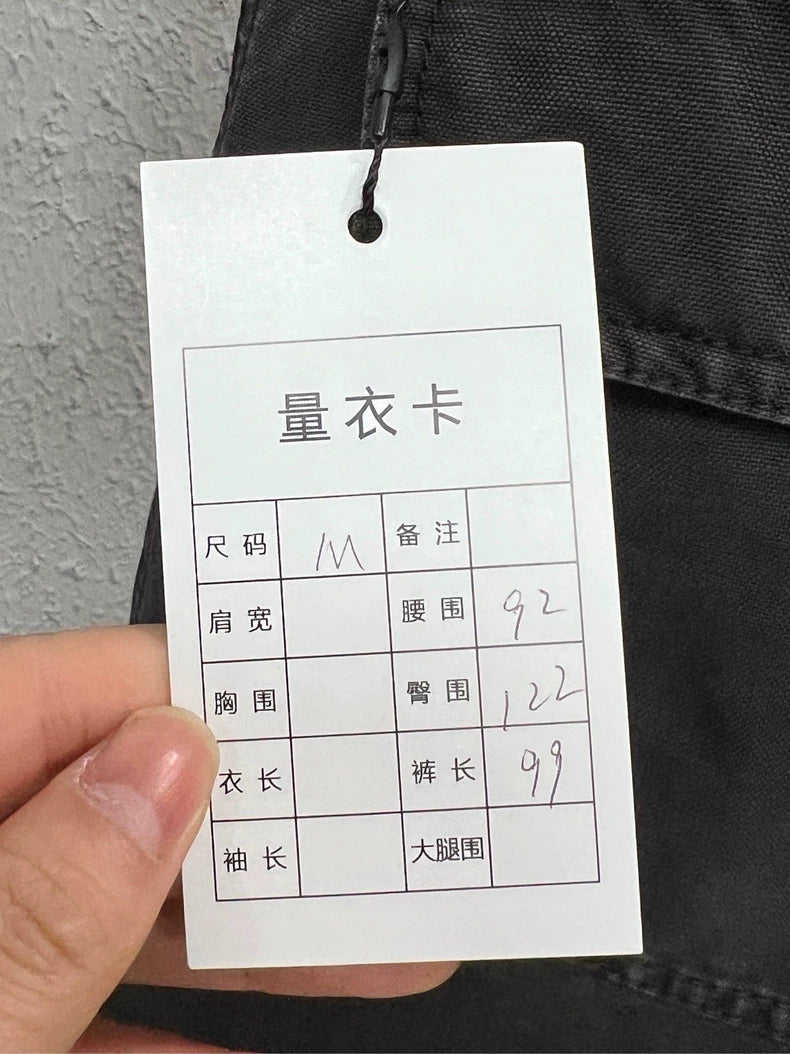 量衣卡
尺码 M 备注
肩宽 腰围 92
胸围 臀围 122
衣长 裤长 99
袖长 大腿围